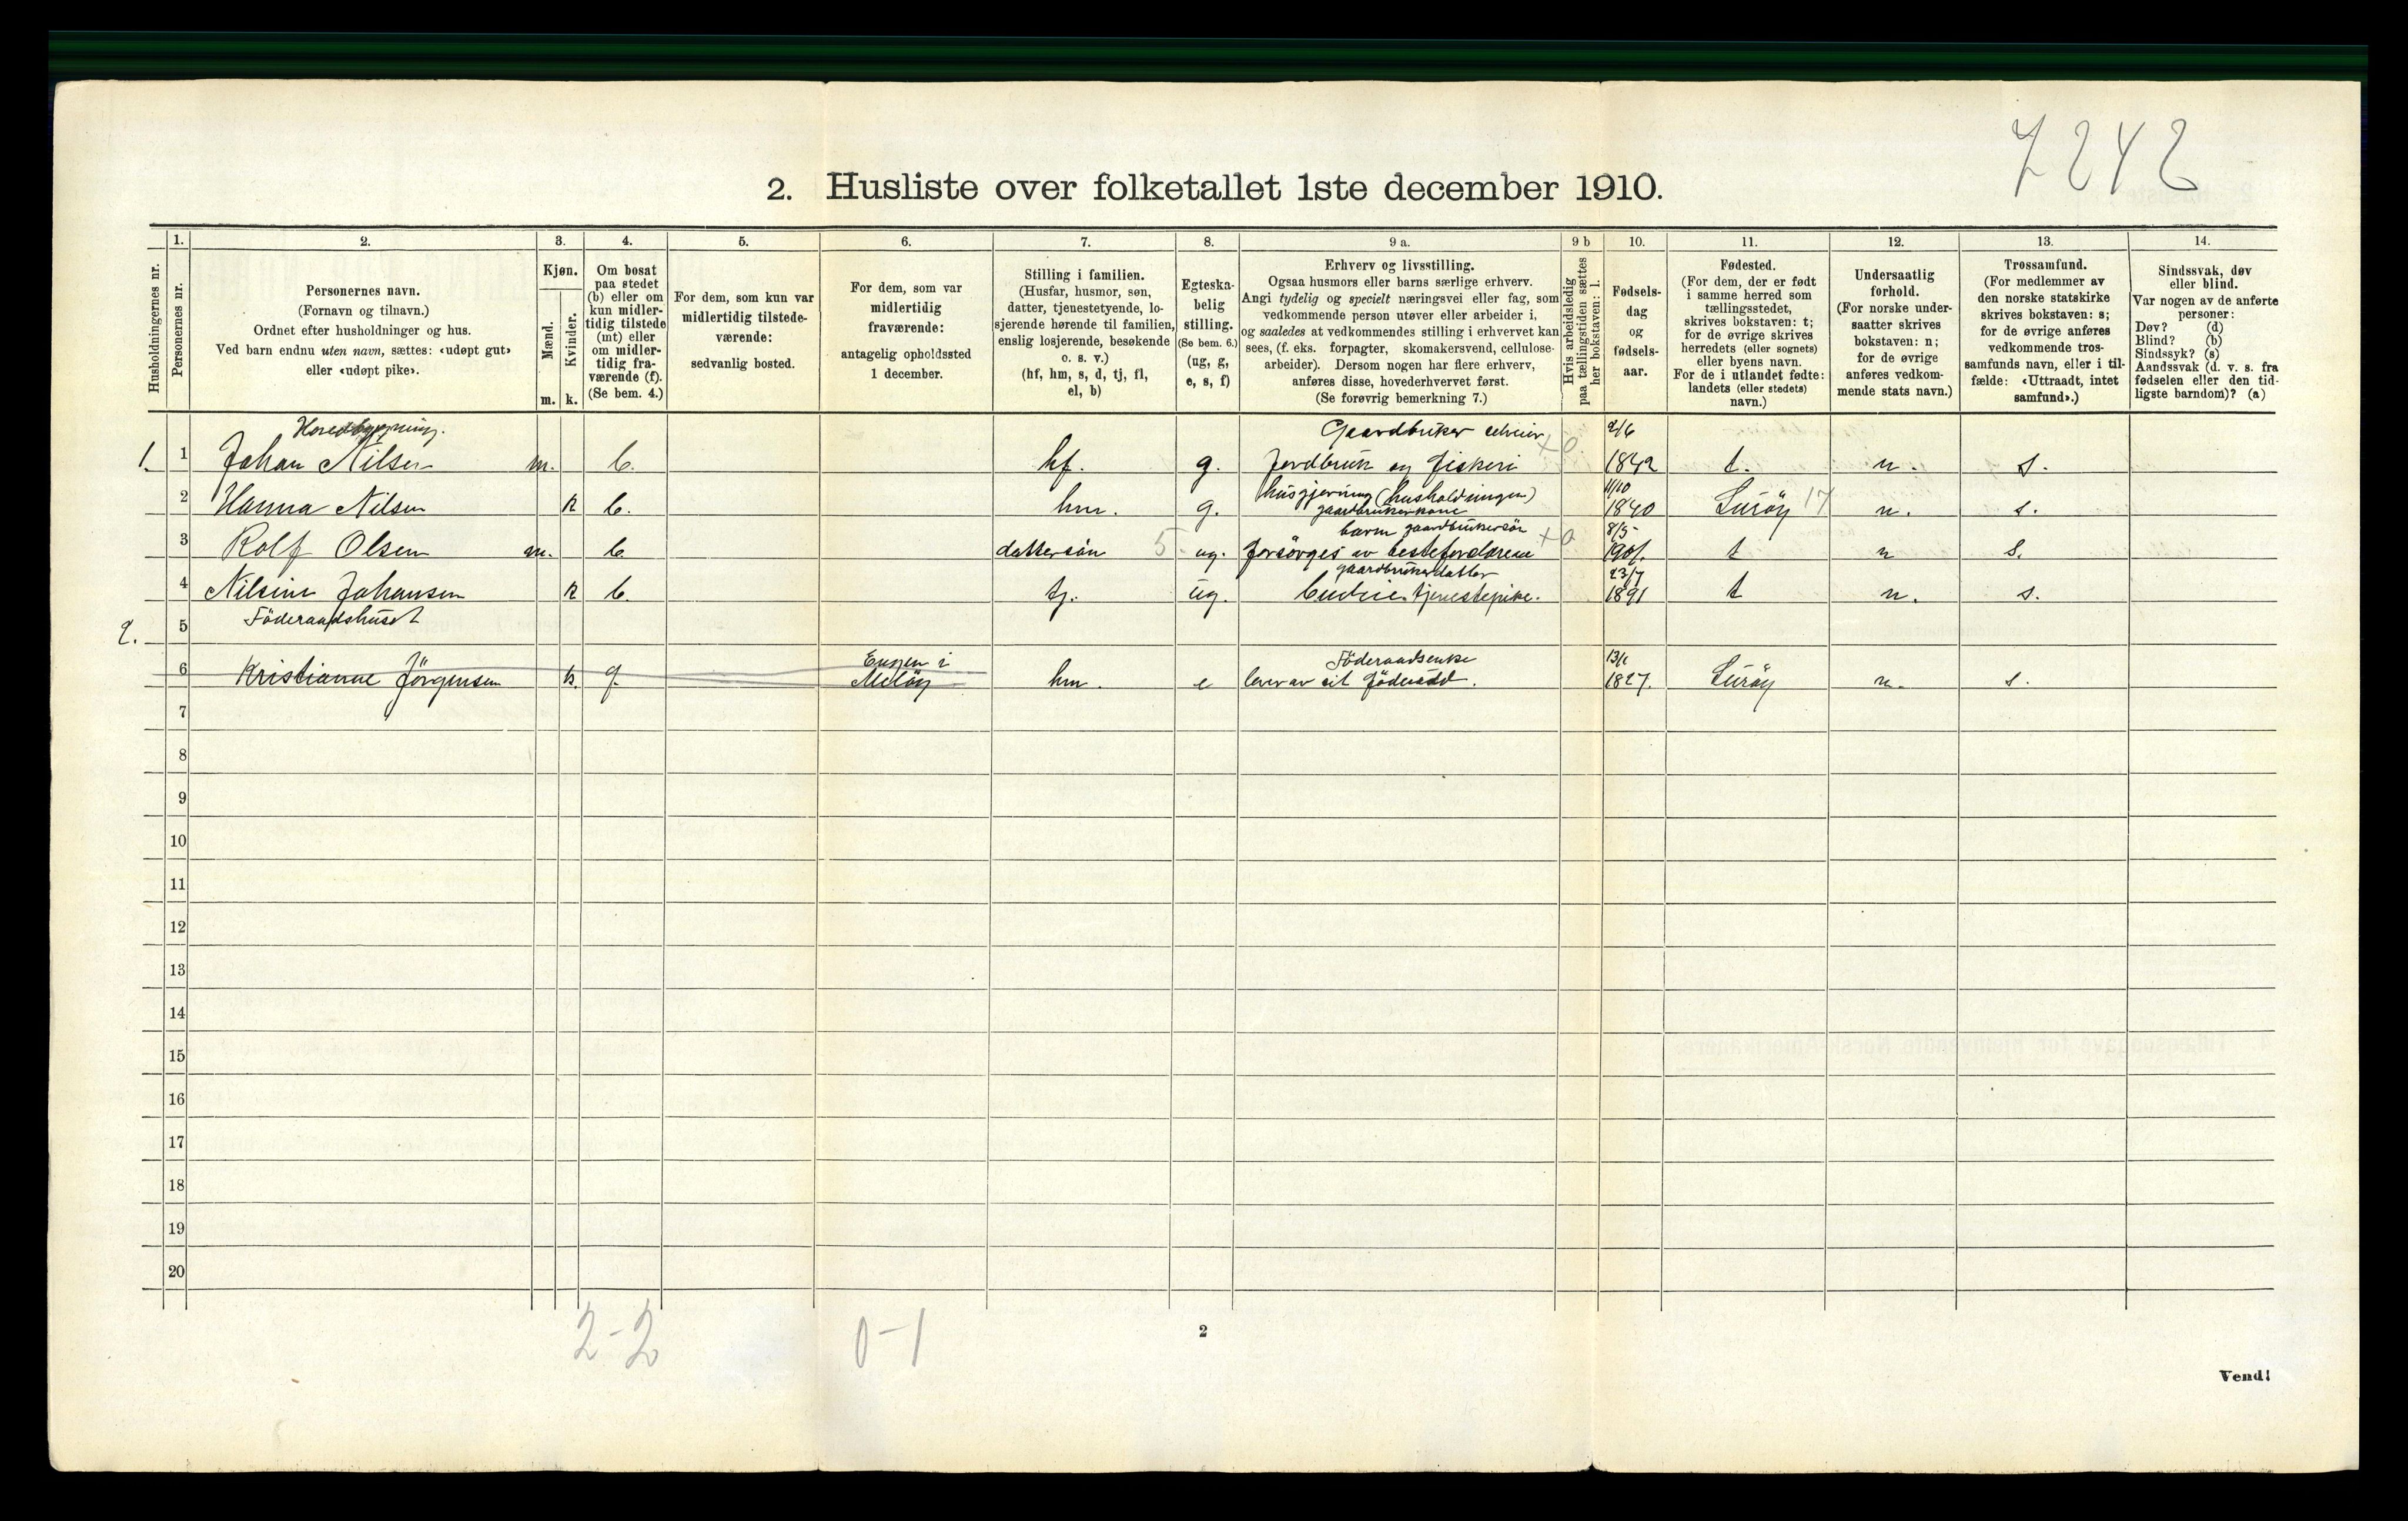 7242
2. Husliste over folketallet 1ste december 1910.
Husholdningernes nr.
1.
Personernes nr.
2.
Personernes navn.
(Fornavn og tilnavn.)
Ordnet efter husholdninger og hus.
Ved barn endnu uten navn, sættes: «udøpt gut»
eller «udøpt pike».
3.
Kjøn.
Mænd.
Kvinder.
m. k.
4.
Om bosat
paa stedet
(b) eller om
kun midler-
tidig tilstede
(mt) eller
om midler-
tidig fra-
værende (f).
(Se bem. 4.)
5.
For dem, som kun var
midlertidig tilstede-
værende:
sedvanlig bosted.
6.
For dem, som var
midlertidig
fraværende:
antagelig opholdssted
1 december.
7.
Stilling i familien.
(Husfar, husmor, søn,
datter, tjenestetyende, lo-
sjerende hørende til familien,
enslig losjerende, besøkende
o. s. v.)
(hf, hm, s, d, tj, fl,
el, b)
8.
Egteska-
belig
stilling.
(Se bem. 6.)
(ug, g,
e, s, f)
9 a.
Erhverv og livsstilling.
Ogsaa husmors eller barns særlige erhverv.
Angi tydelig og specielt næringsvei eller fag, som
vedkommende person utøver eller arbeider i,
og saaledes at vedkommendes stilling i erhvervet kan
sees, (f. eks. forpagter, skomakersvend, cellulose-
arbeider). Dersom nogen har flere erhverv,
anføres disse, hovederhvervet først.
(Se forøvrig bemerkning 7.)
9 b
Hvis arbeidsledig
paa tællingstiden sættes
her bokstaven: l.
10.
Fødsels-
dag
og
fødsels-
aar.
11.
Fødested.
(For dem, der er født
i samme herred som
tællingsstedet,
skrives bokstaven: t;
for de øvrige skrives
herredets (eller sognets)
eller byens navn.
For de i utlandet fødte:
landets (eller stedets)
navn.)
12.
Undersaatlig
forhold.
(For norske under-
saatter skrives
bokstaven: n;
for de øvrige
anføres vedkom-
mende stats navn.)
13.
Trossamfund.
(For medlemmer av
den norske statskirke
skrives bokstaven: s;
for de øvrige anføres
vedkommende tros-
samfunds navn, eller i til-
fælde: «Uttraadt, intet
samfund».)
14.
Sindssvak, døv
eller blind.
Var nogen av de anførte
personer:
Døv? (d)
Blind? (b)
Sindssyk? (s)
Aandssvak (d. v. s. fra
fødselen eller den tid-
ligste barndom)? (a)
Hovedbygning.
Gaardbruker selveier 2/6
1. 1 Johan Nilsen m. b. hf. g. Jordbruk og fiskeri +0 1842 t. n. s.
husgjerning (husholdningen) 11/10
2 Hanna Nilsen k b. hm. g. gaardbrukerkone 1840 Luröy 17 n. s.
barn gaardbrukersön 8/5
3 Rolf Olsen m. b. dattersön 5 ug. forsörges av besteforældrene +0 1901. t n s.
gaardbrukerdatter 23/7
4 Nilsine Johansen k b. tj. ug. budeie. tjenestepike. 1891 t n. s.
2. 5 Föderaadshuset
Engen i Föderaadsenke 13/1
6 Kristianne Jörgensen k. f. Melöy hm. e lever av sit föderåd. 1827. Luröy n. s.
7
8
9
10
11
12
13
14
15
16
17
18
19
20
2-2 0-1
2
Vend!